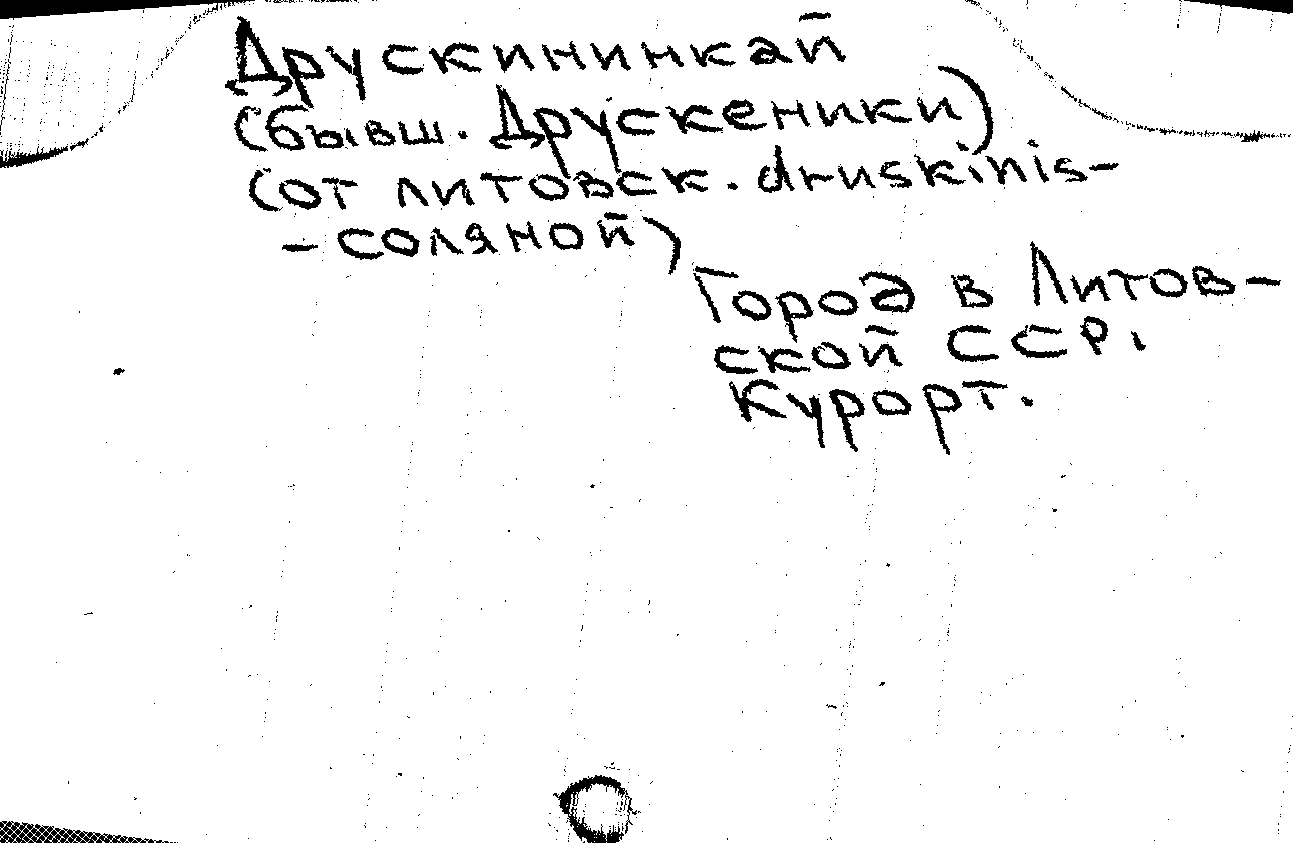 Друскининкай
(бывш. Друскеники)
(от литовск. druskinis-
- соляной)
Город в Литов-
ской ССР.
Курорт.